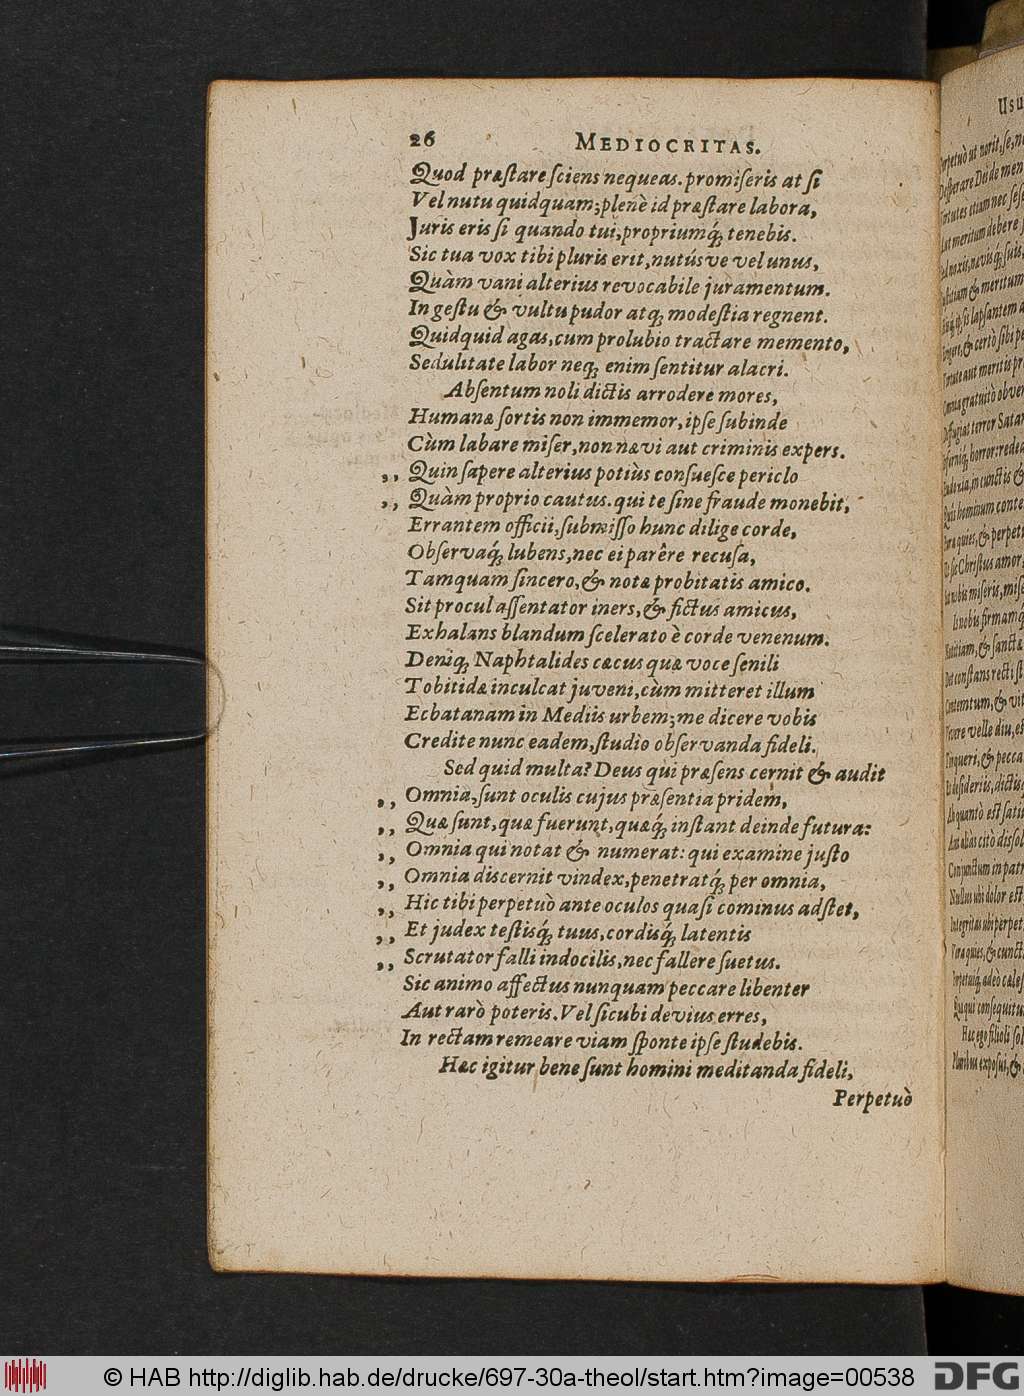 26 MEDIOCRITAS.
Quod præstare sciens nequeas. promiseris at si
Vel nutu quidquam; plenè id præstare labora,
Juris eris si quando tui, propriumq́; tenebis.
Sic tua vox tibi pluris erit, nutusve vel unus,
Quàm vani alterius revocabile juramentum.
In gestu & vultu pudor atq; modestia regnent.
Quidquid agas, cum prolubio tractare memento,
Sedulitate labor neq; enim sentitur alacri.
Absentum noli dictis arrodere mores,
Humanæ sortis non immemor, ipse subinde
Cùm labare miser, non nævi aut criminis expers.
,, Quin sapere alterius potiùs consuesce periclo
,, Quàm proprio cautus. qui te sine fraude monebit,
Errantem officii, submisso hunc dilige corde,
Observaq́; lubens, nec ei parêre recusa,
Tamquam sincero, & notæ probitatis amico.
Sit procul assentator iners, & fictus amicus,
Exhalans blandum scelerato è corde venenum.
Deniq; Naphtalides cæcus quæ voce senili
Tobitidæ inculcat juveni, cùm mitteret illum
Ecbatanam in Mediis urbem; me dicere vobis
Credite nunc eadem, studio observanda fideli.
Sed quid multa? Deus qui præsens cernit & audit
,, Omnia, sunt oculis cujus præsentia pridem,
,, Quæ sunt, quæ fuerunt, quæq́; instant deinde futura:
,, Omnia qui notat & numerat: qui examine justo
,, Omnia discernit vindex, penetratq́; per omnia,
,, Hic tibi perpetuò ante oculos quasi cominus adstet,
,, Et judex testisq́; tuus, cordisq́; latentis
,, Scrutator falli indocilis, nec fallere suetus.
Sic animo affectus nunquam peccare libenter
Aut rarò poteris. Vel sicubi devius erres,
In rectam remeare viam sponte ipse studebis.
Hæc igitur bene sunt homini meditanda fideli,
Perpetuò
© HAB http://diglib.hab.de/drucke/697-30a-theol/start.htm?image=00538
DFG